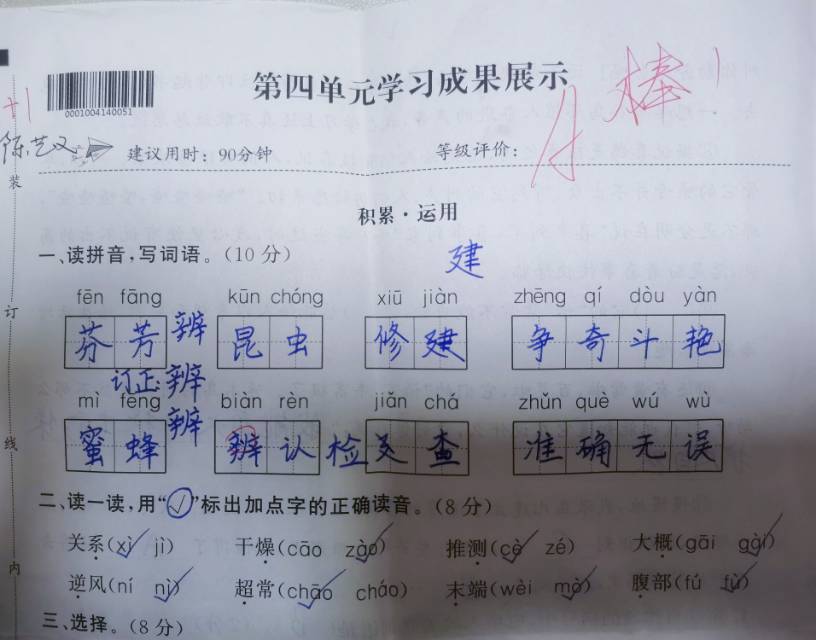 第四单元学习成果展示
棒
0001004140051
+1
陈艺
建议用时：90分钟
等级评价：
装
积累·运用
一、读拼音，写词语。（10分）
建
fēn fāng kūn chóng xiū jiàn zhēng qí dòu yàn
订
芬芳 辨 昆虫 修建 争奇斗艳
订正 辨
mì fēng biàn rèn jiǎn chá zhǔn què wú wù
辨
线
蜜蜂 辨认 检查 准确无误
二、读一读，用“√”标出加点字的正确读音。（8分）
关系（xì√ jì） 干燥（cāo zào√） 推测（cè√ zé） 大概（gāi gài√）
内
逆风（ní nì√） 超常（chāo√ cháo） 末端（wèi mò√） 腹部（fú fù√）
三、选择。（8分）